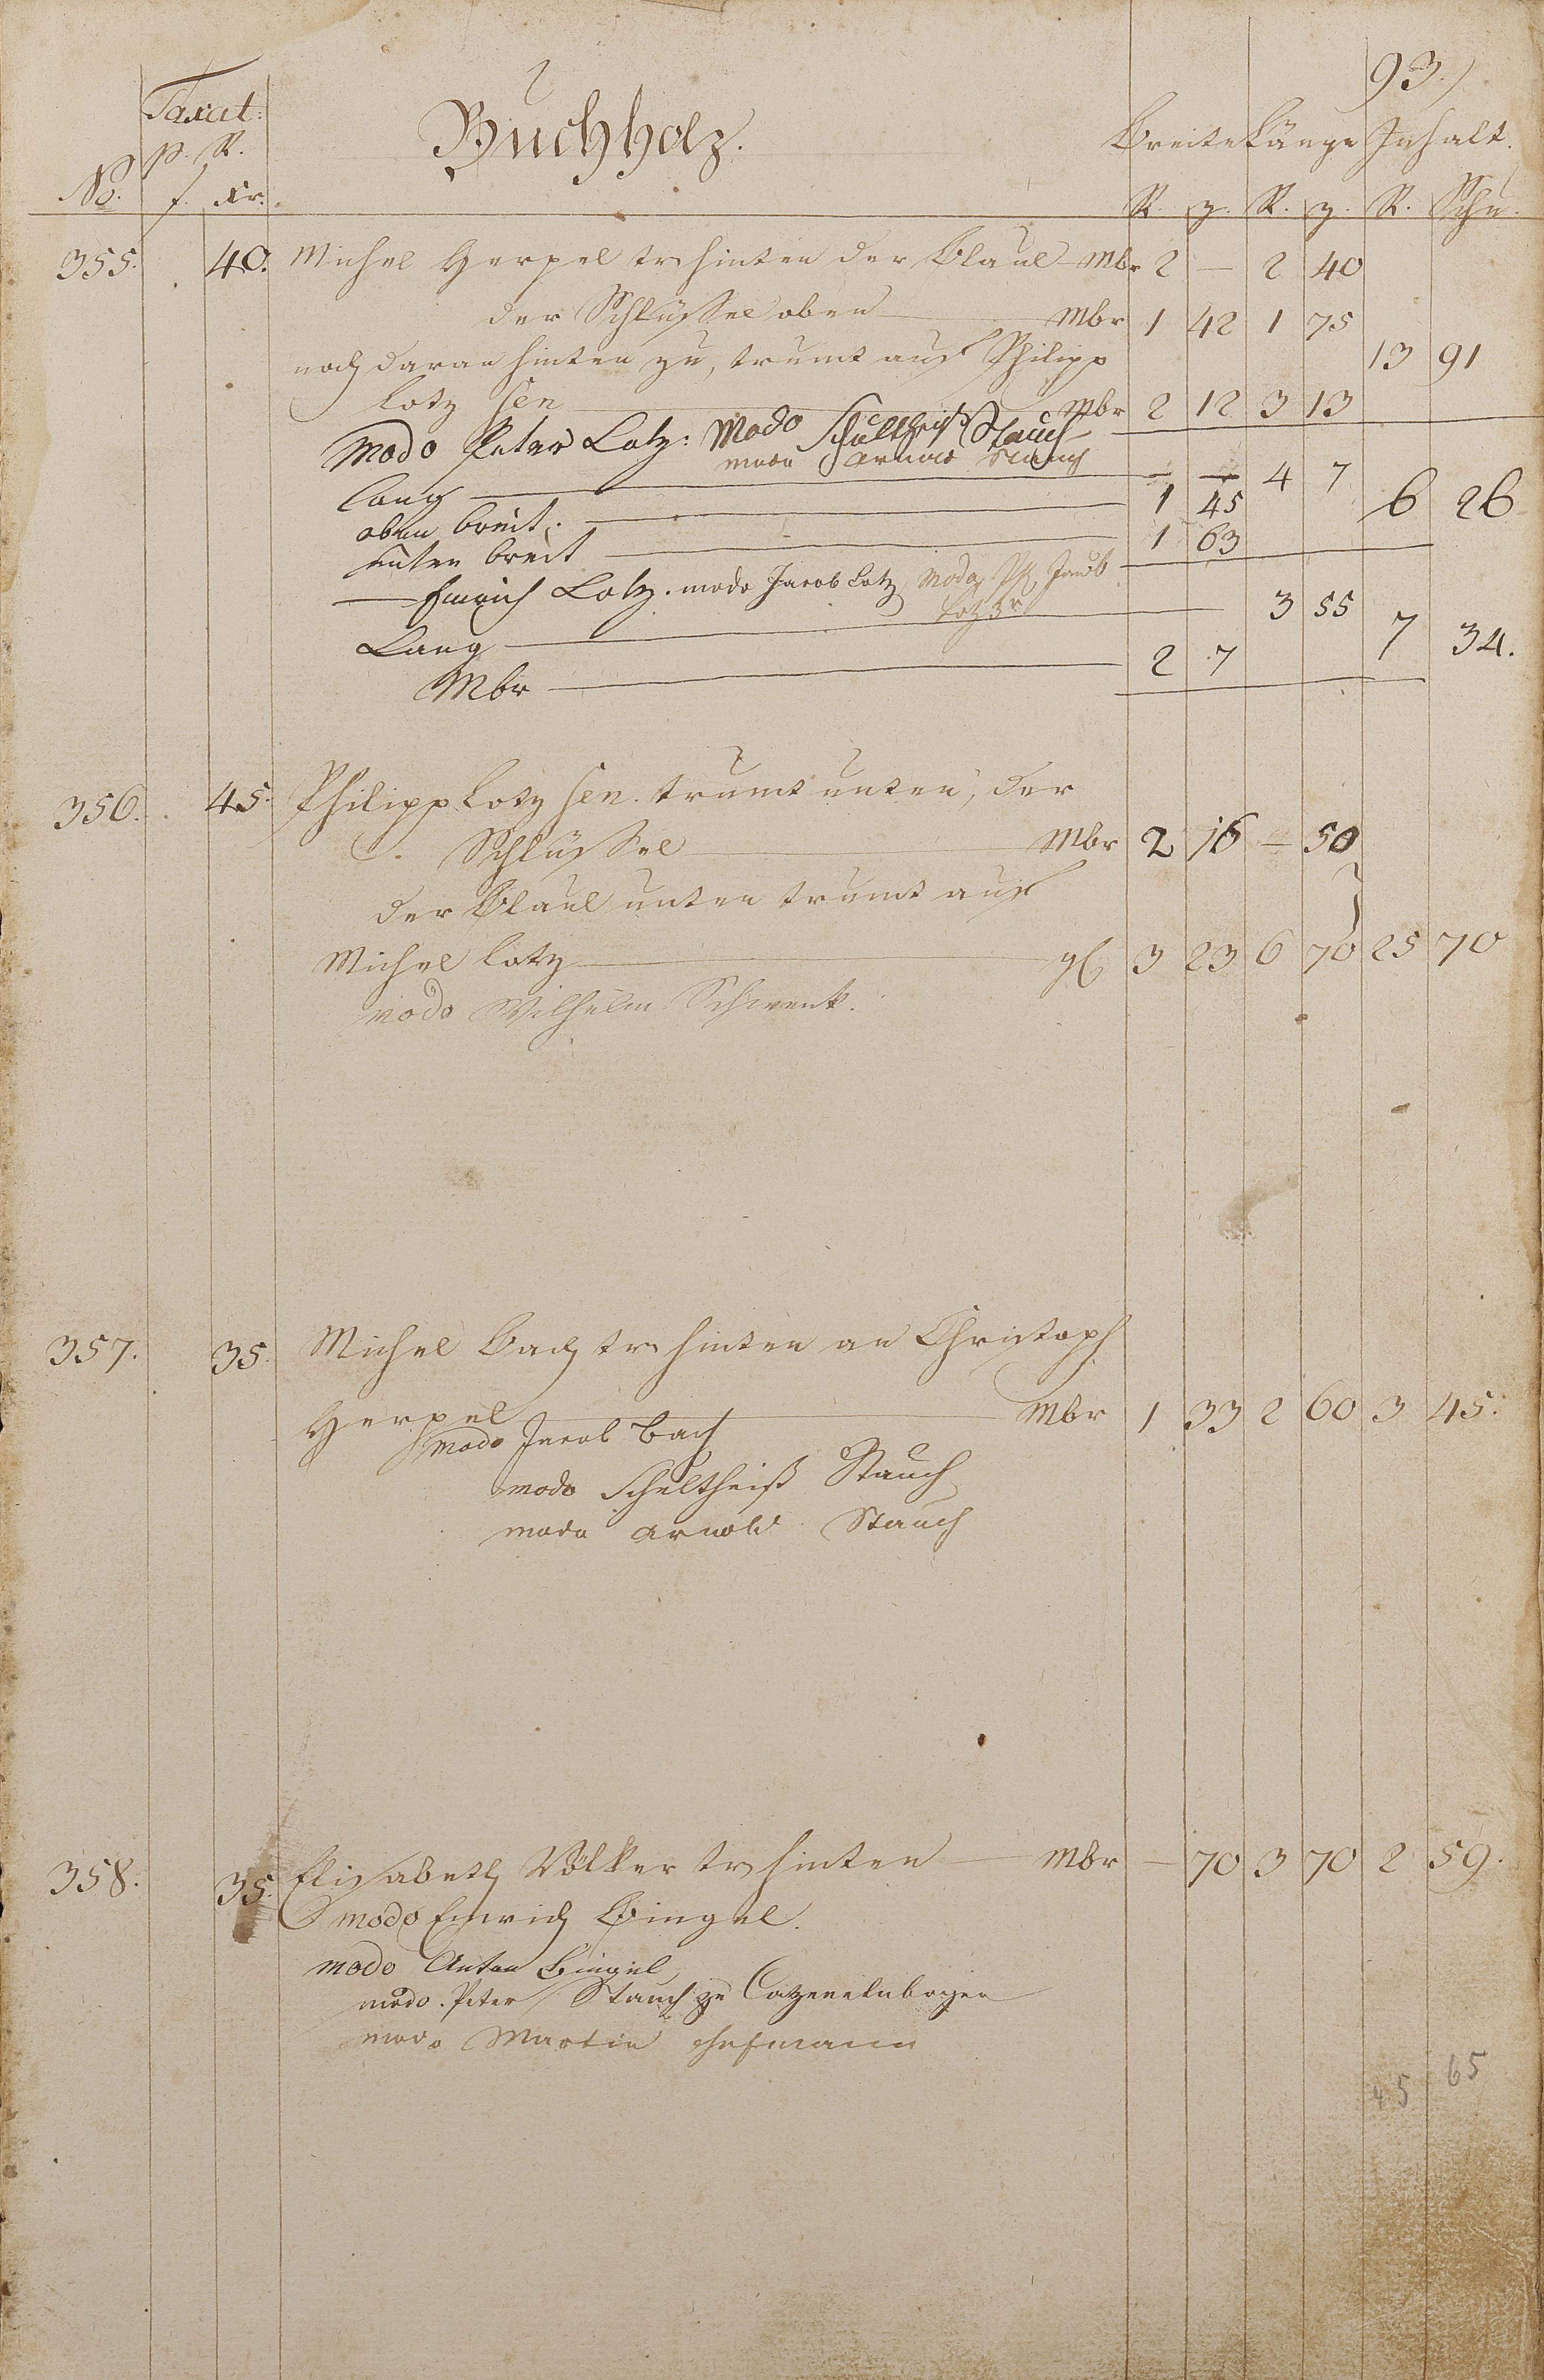 93.)
Taxat:
Buchholz.
Breite Länge Inhalt.
p. R.
No. f. xr. R. z. R. z. R. Schu.
355. 40. Michel Herpel tr hinten der Blaul Mbr 2 — 2 40
der Schlüssel oben Mbr 1 42 1 75
noch daran hinten zu, trumt auf Philipp 13 91
Lotz sen Mbr 2 12 3 13
modo Peter Lotz: Modo Schultheiß Stauch
modo Arnold Stauch
Lang — — 4 7
oben breit. 1 45 6 26
unten breit 1 63
Emrich Lotz. modo Jacob Lotz Modo Jacob
Lotz 3r
Lang 3 55 7 34.
Mbr 2 7
356. 45. Philipp Lotz sen. trumt unten, der
Schlüssel Mbr 2 16 — 50
der Blaul unten trumt auf
Michel Lotz gl 3 23 6 70 25 70
modo Wilhelm Schwenk.
357. 35. Michel Bach tr hinten an Christoph
Herpel Mbr 1 33 2 60 3 45.
modo Jacob Bach
modo Schultheiß Stauch
modo Arnold Stauch
358. 35. Elisabeth Völker tr hinten Mbr — 70 3 70 2 59.
modo Emrich Bingel.
modo Anton Bingel
modo. Peter Stauch zu Catzenelnbogen
modo Martin
45 65